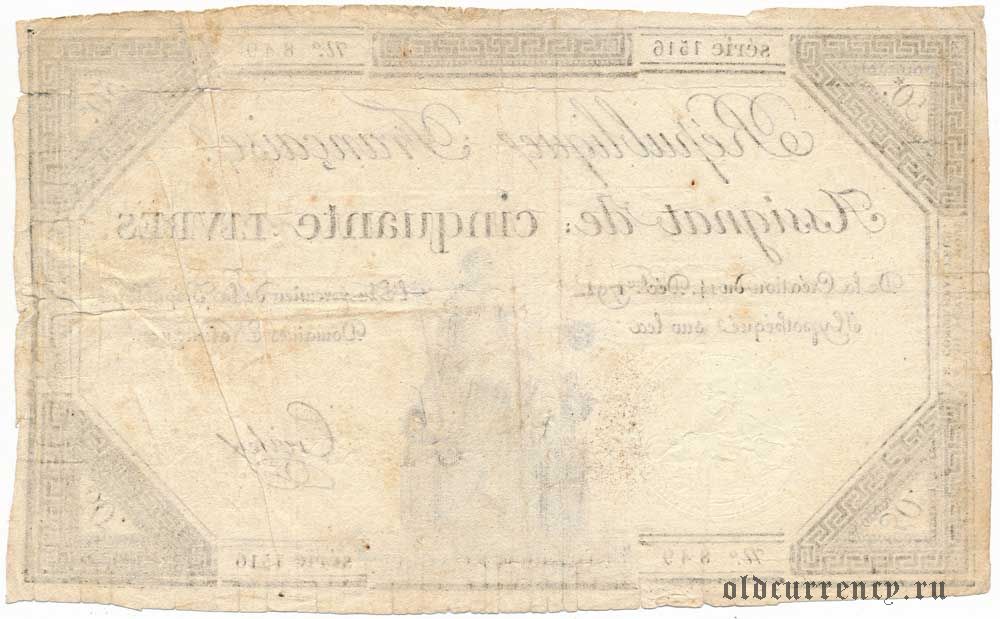 série 1516 Nº 849
République Française
Assignat de cinquante LIVRES.
De la Création du 14 Décbre 1792
l'An premier de la République
Hypothéqué sur les
Domaines
Nº 849 série 1516
oldcurrency.ru